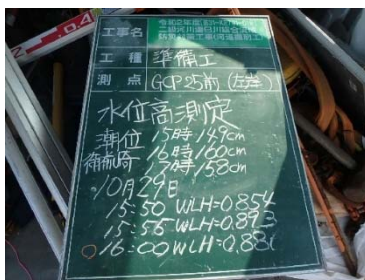 工事名
令和2年度
二級河川
工種 準備工
測点 GCP25前(左岸)
水位高測定
潮位 15時 149cm
御前崎 16時 160cm
17時 158cm
10月29日
15:50 WLH=0.854
15:55 WLH=0.893
16:00 WLH=0.88